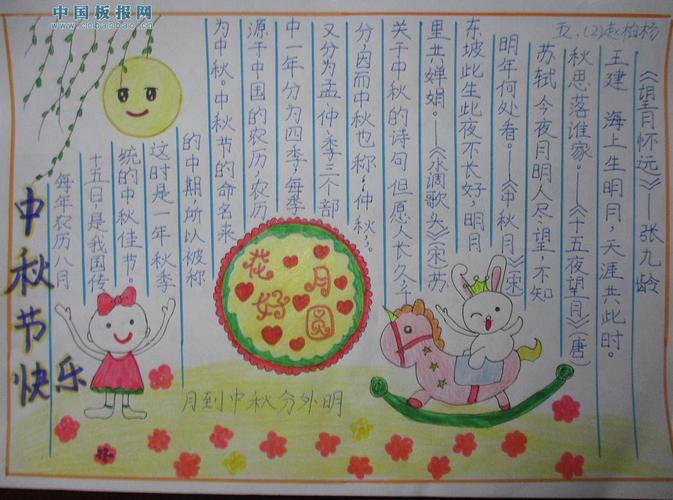 中国板报网
www.cobanbao.cn
五.(2)赵柏杨
中秋节快乐
每年农历八月
十五日,是我国传
统的中秋佳节。
这时是一年秋季
的中期,所以被称
为中秋。中秋节的命名来
源于中国的农历,农历
中一年分为四季,每季
又分为孟、仲、季三个部
分,因而中秋也称,仲秋。
关于中秋的诗句 但愿人长久,千
里共婵娟。——《水调歌头》(宋苏
东坡此生此夜不长好,明月
明年何处看。——《中秋月》(宋
苏轼 今夜月明人尽望,不知
秋思落谁家。——《十五夜望月》(唐)
王建 海上生明月,天涯共此时。
《望月怀远》——张九龄
花好月圆
月到中秋分外明